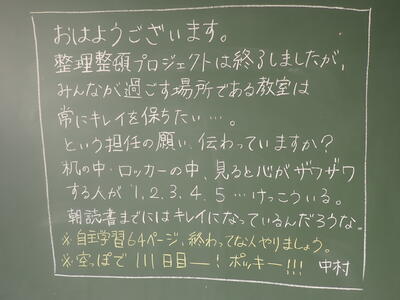 おはようございます。
整理整頓プロジェクトは終了しましたが、
みんなが過ごす場所である教室は
常にキレイを保ちたい…。
という担任の願い、伝わっていますか？
机の中・ロッカーの中、見ると心がザワザワ
する人が1,2,3,4,5…けっこういる。
朝読書までにはキレイになっているんだろうな。
※自主学習64ページ、終わってな人やりましょう。
※空っぽで111日目ー！ポッキー!!! 中村